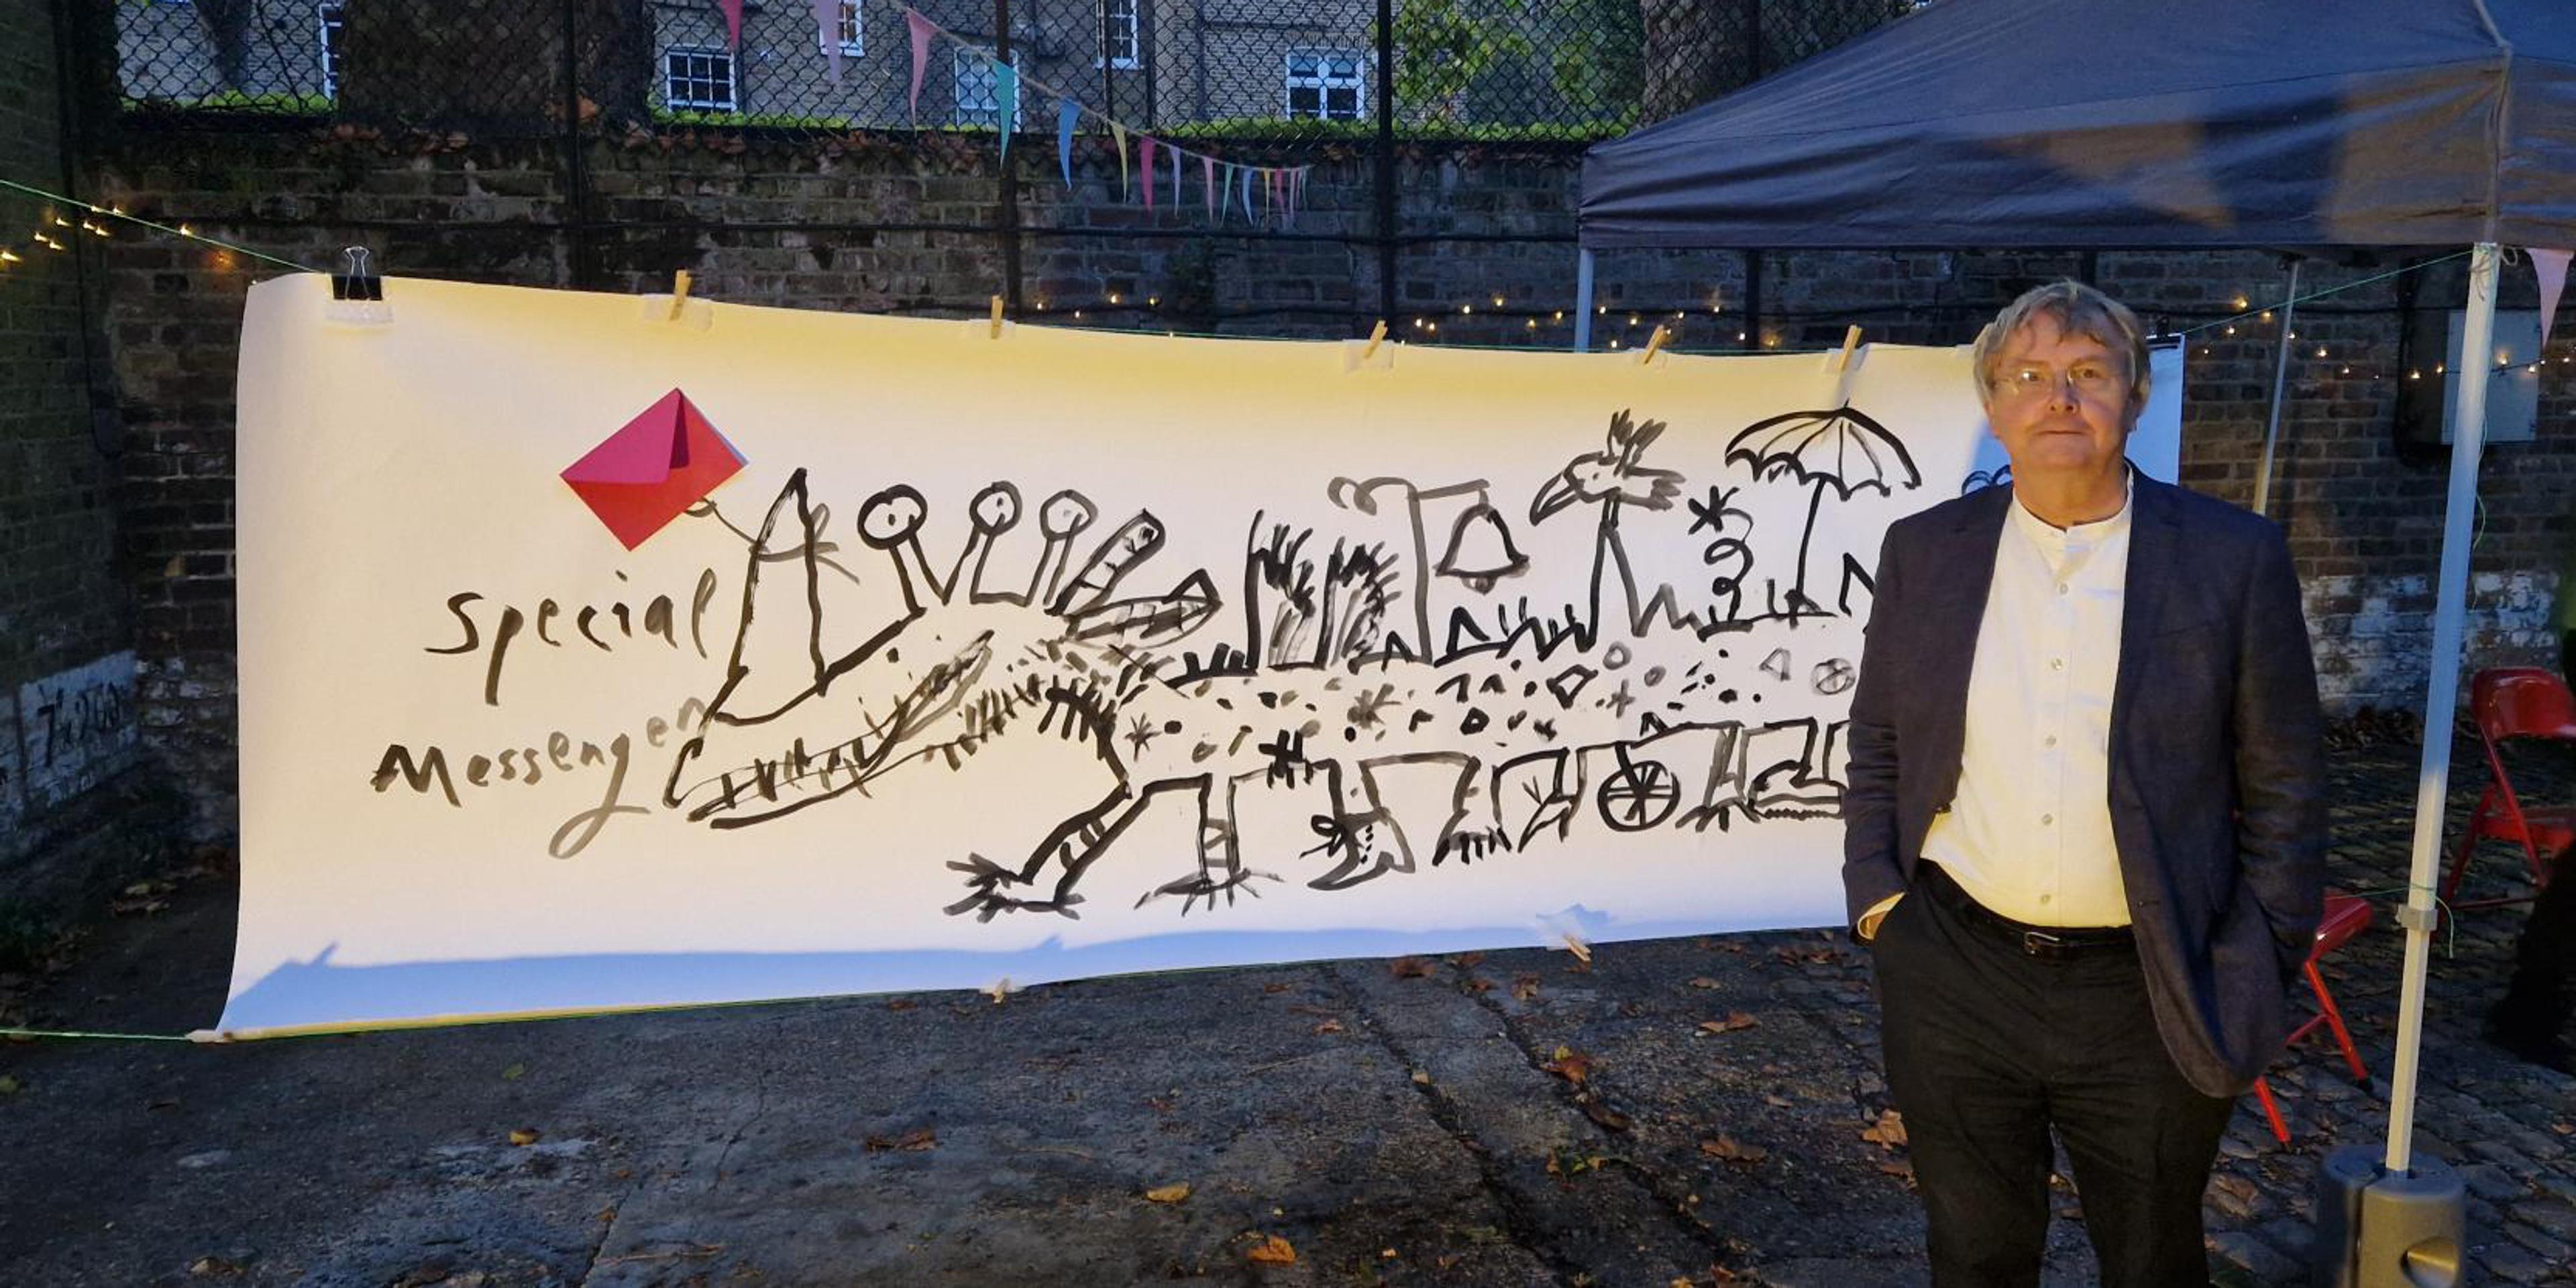 Special
Messenger